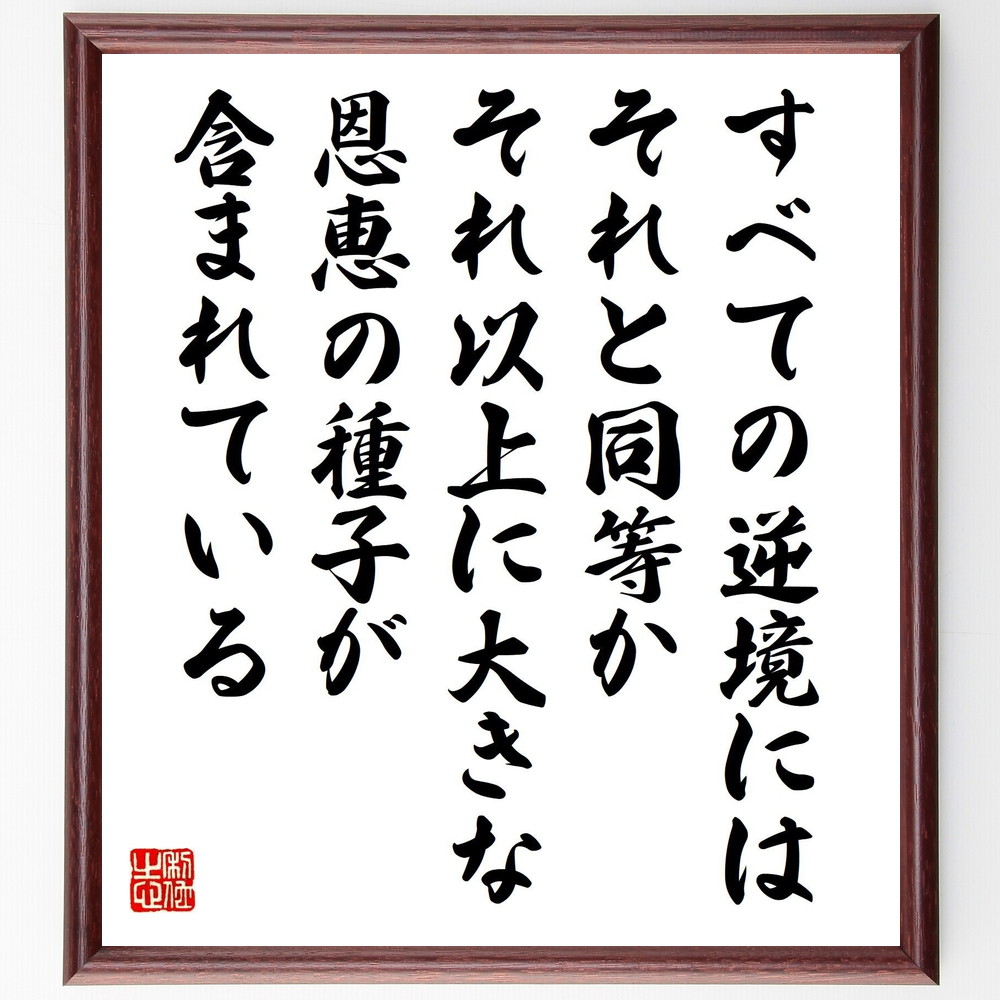 すべての逆境には
それと同等か
それ以上に大きな
恩恵の種子が
含まれている